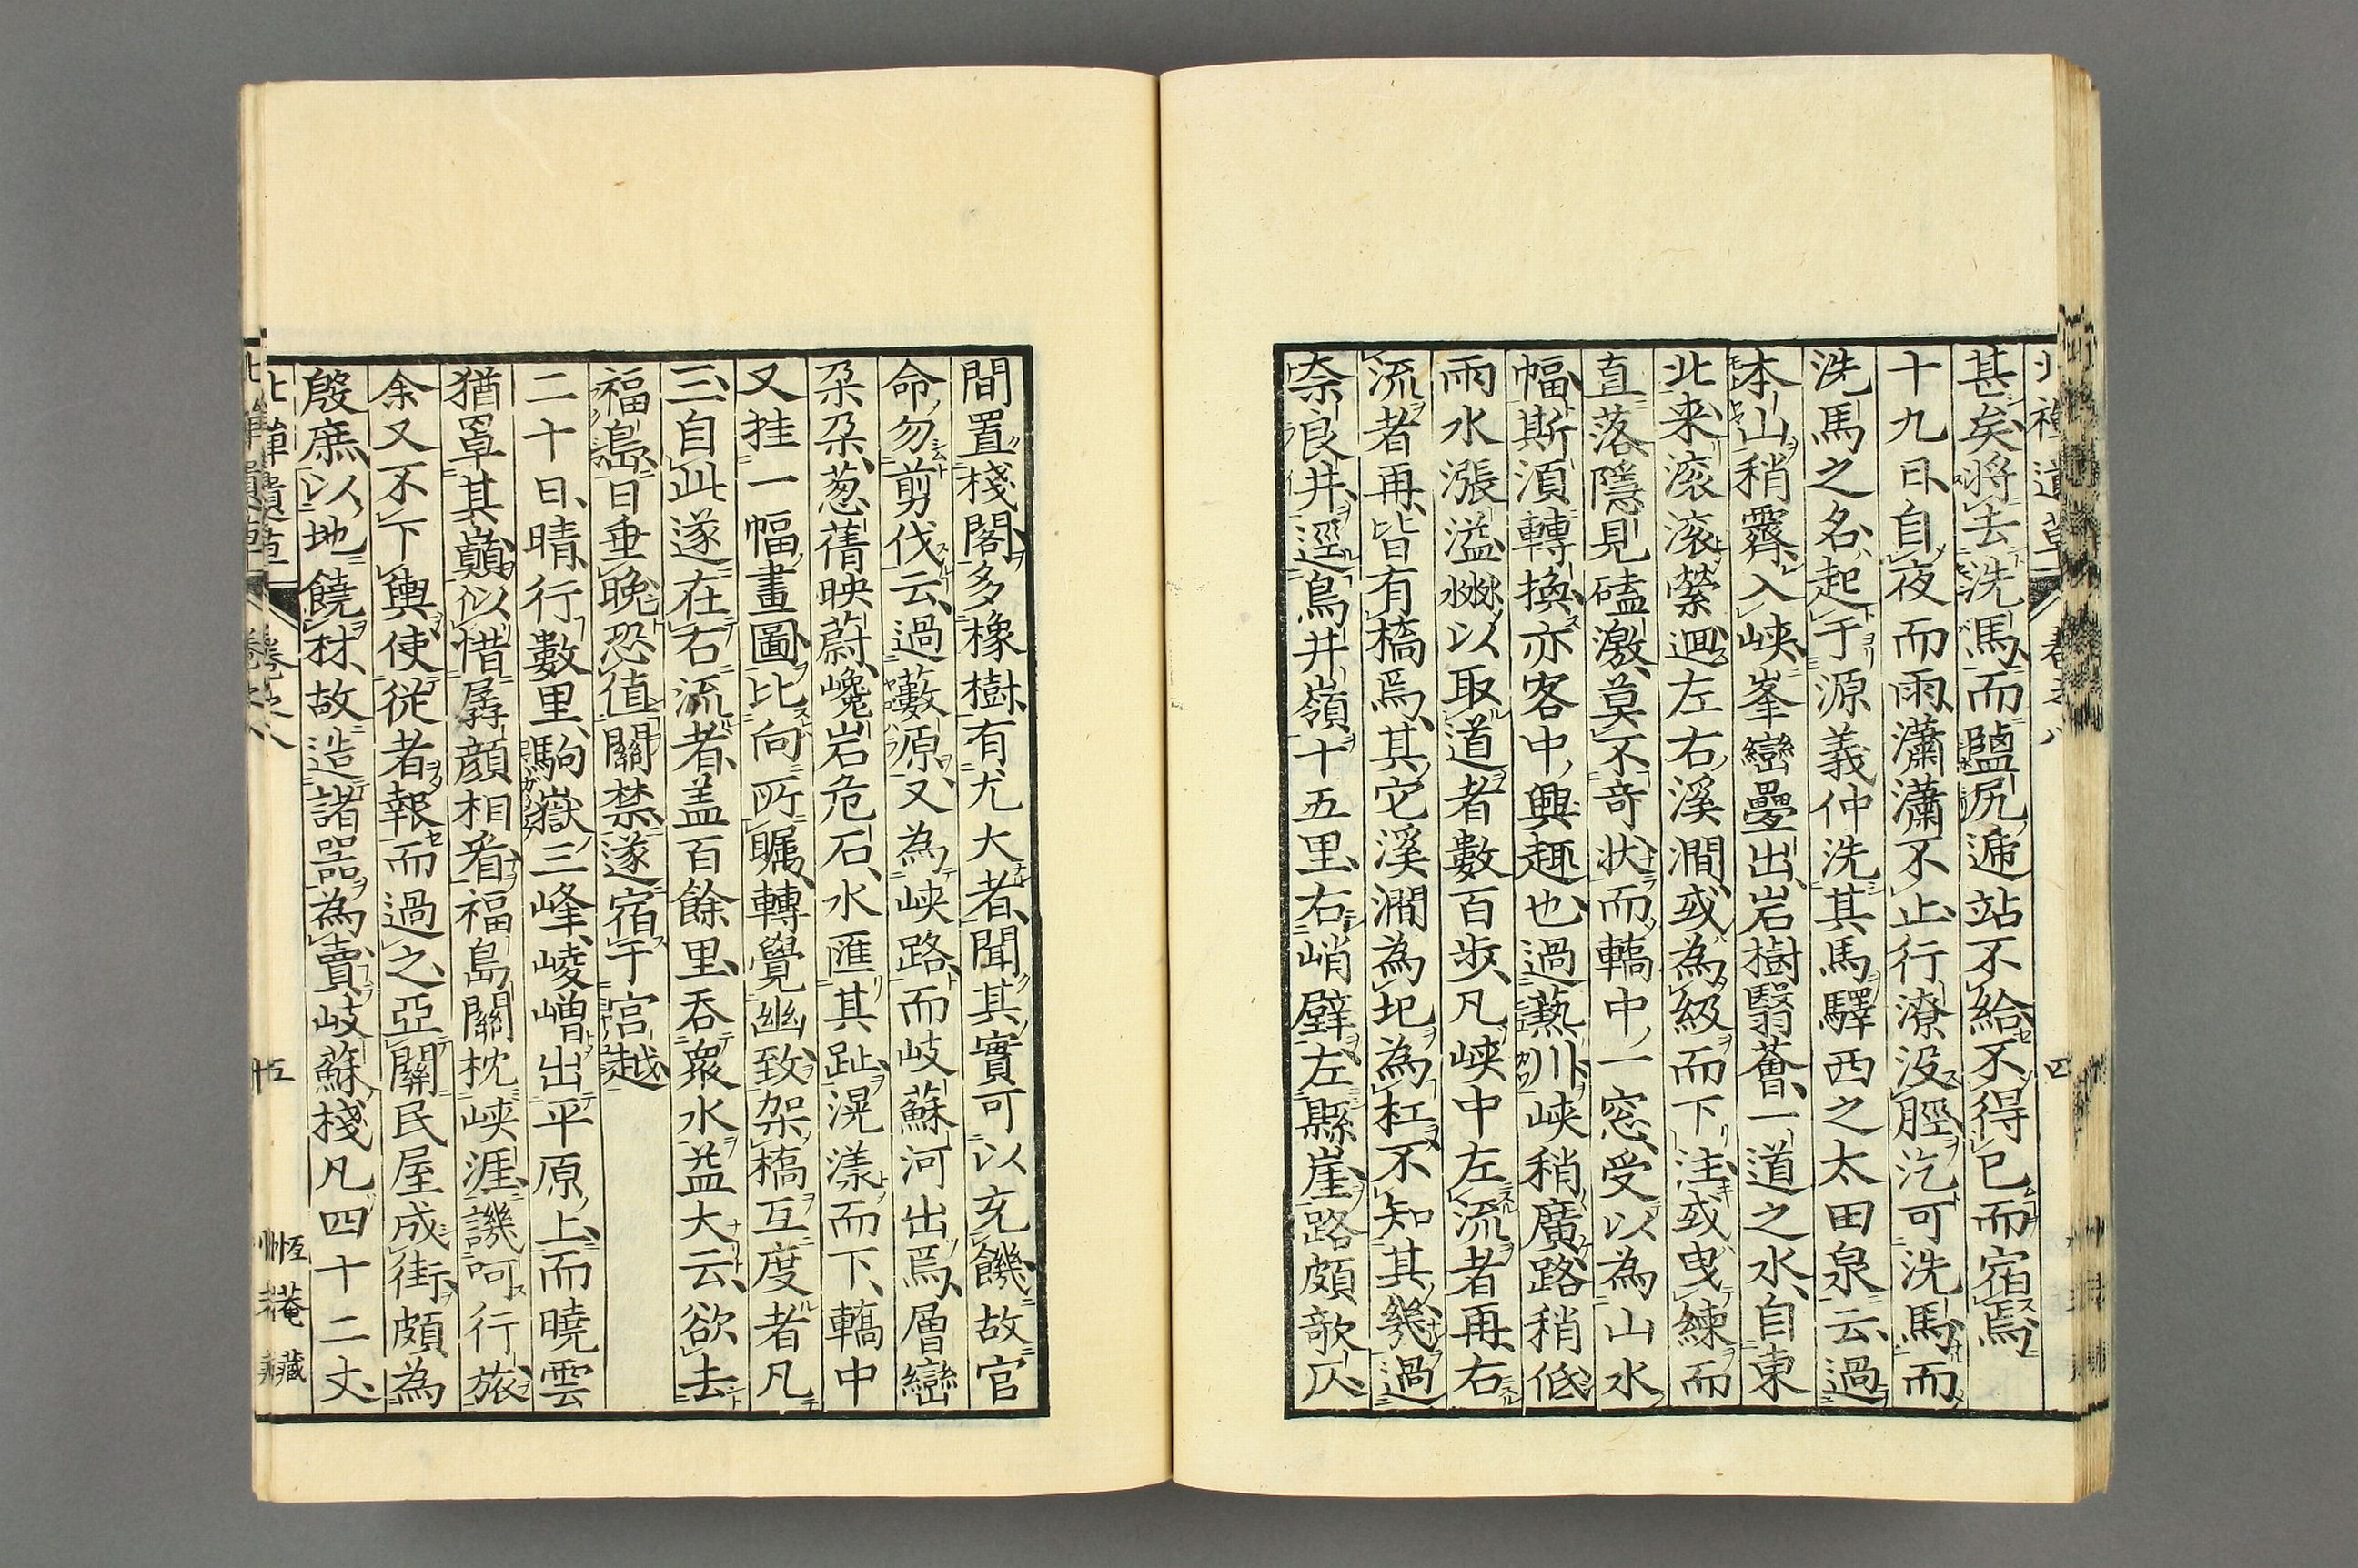 甚矣將去洗馬而鹽尻遞站不給不得已而宿焉
十九日自夜而雨瀟瀟不止行潦没脛汔可洗馬而
洗馬之名起于源義仲洗其馬驛西之太田泉云過
本山稍霽入峡峯巒疊出岩樹翳薈一道之水自東
北来滚滚縈迴左右溪澗或為級而下注或曳練而
直落隱見磕激莫不竒状而轎中一窓受以為山水
幅斯須轉換亦客中興趣也過𤍠川峡稍廣路稍低
雨水漲溢以取道者數百歩凡峡中左流者再右
流者再皆有橋焉其它溪澗為圯為杠不知其幾過
奈良井逕鳥井嶺十五里右峭壁左縣崖路頗欹仄
間置棧閣多橡樹有尤大者聞其實可以充饑故官
命勿剪伐云過藪原又為峡路而岐蘇河出焉層巒
朶朶葱蒨映蔚巉岩危石水匯其趾滉漾而下轎中
又挂一幅畫圖比向所矚轉覺幽致架橋互度者凡
三自此遂在右流者盖百餘里吞衆水益大云欲去
福島日垂晚恐值關禁遂宿于宮越
二十日晴行數里駒嶽三峰崚嶒出平原上而曉雲
猶罩其巔似惜孱顔相看福島關枕峡涯譏呵行旅
余又不下輿使從者報而過之亞關民屋成街頗為
殷庶以地饒材故造諸器為賣岐蘇棧凡四十二丈
恆菴藏